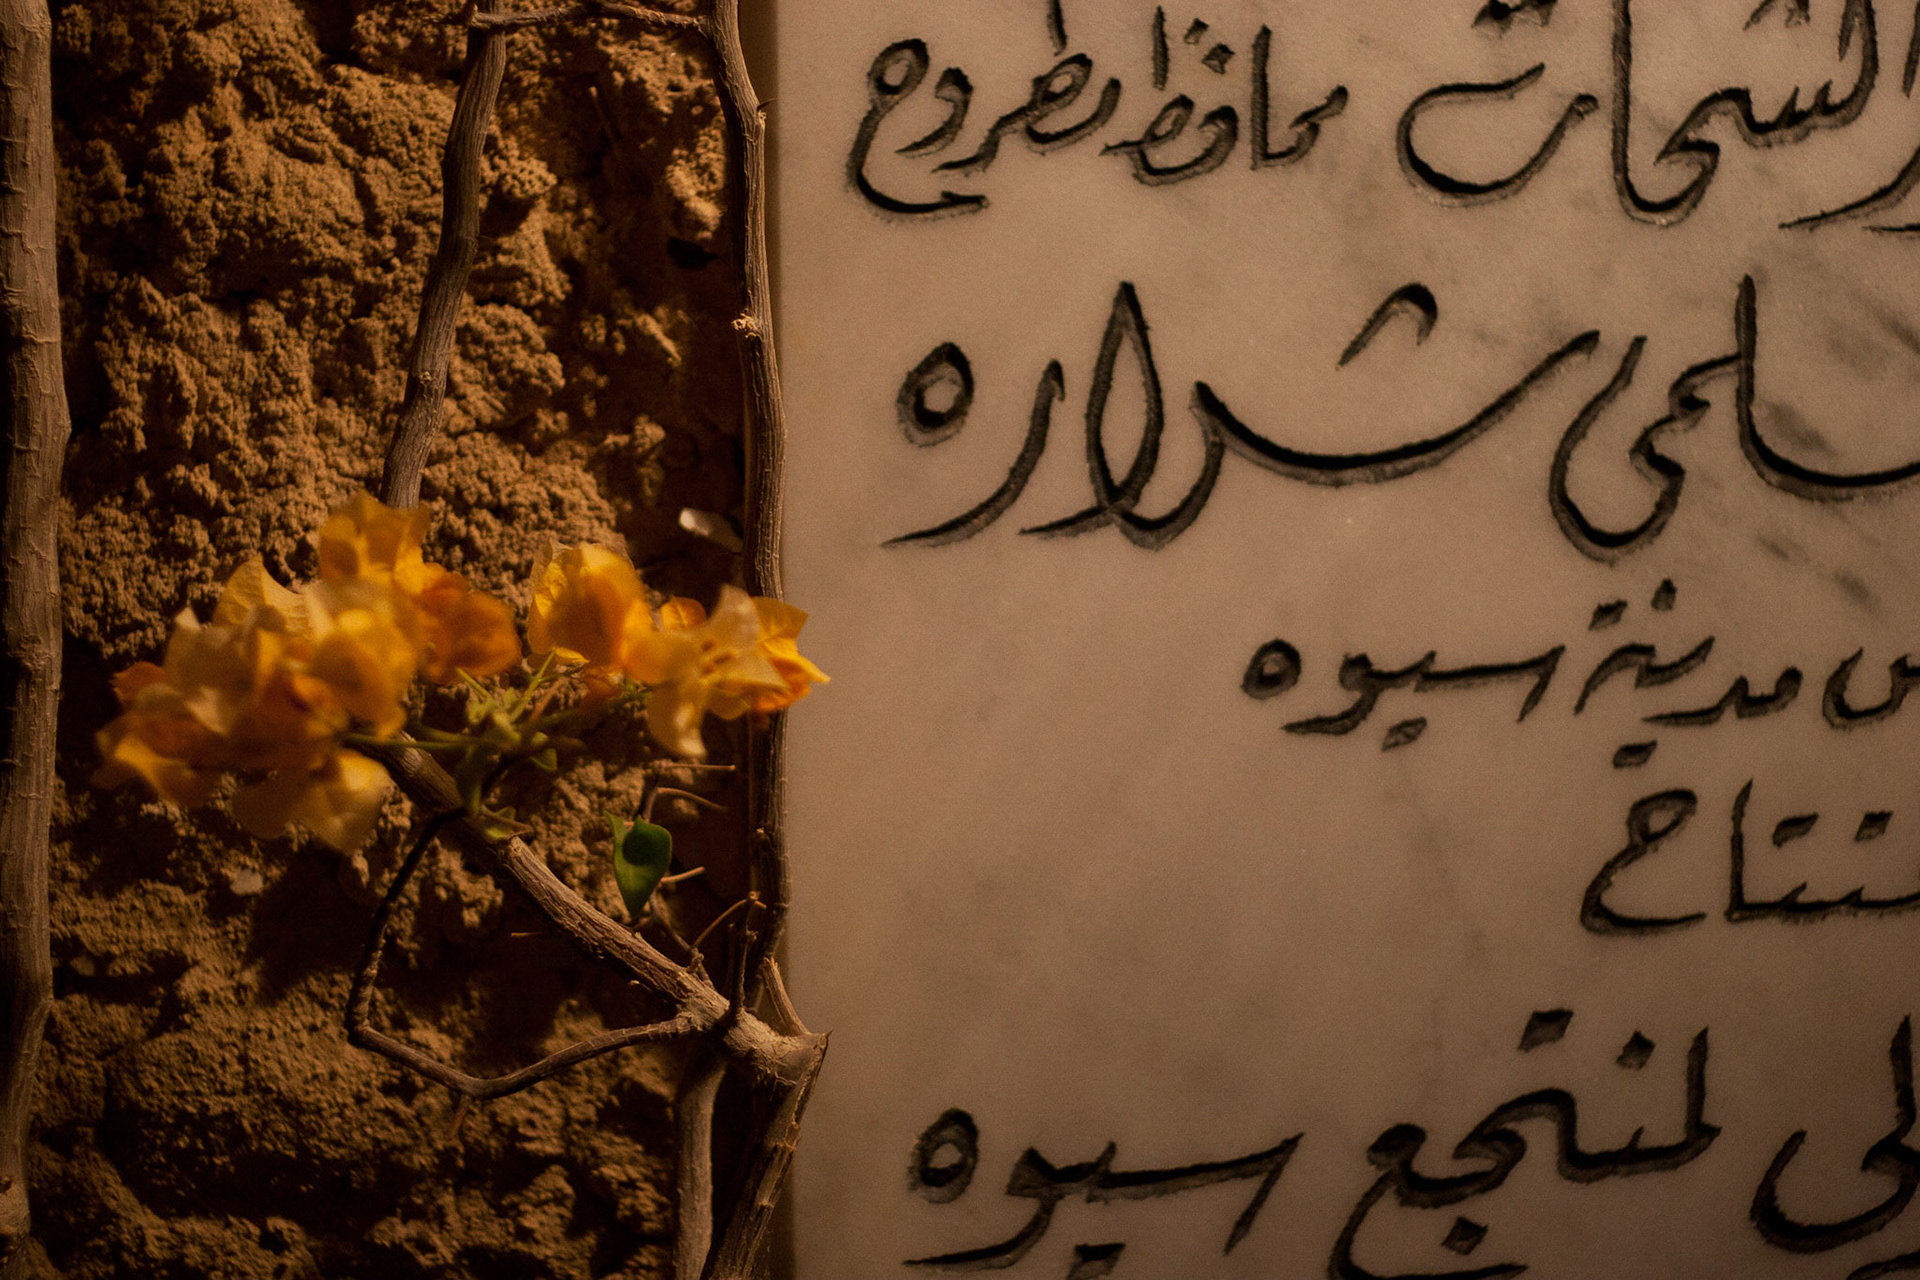 الشحات محافظ مطروح
سلمى شراره
س مدينة سيوه
ـتتاح
لى لمنتجع سيوه